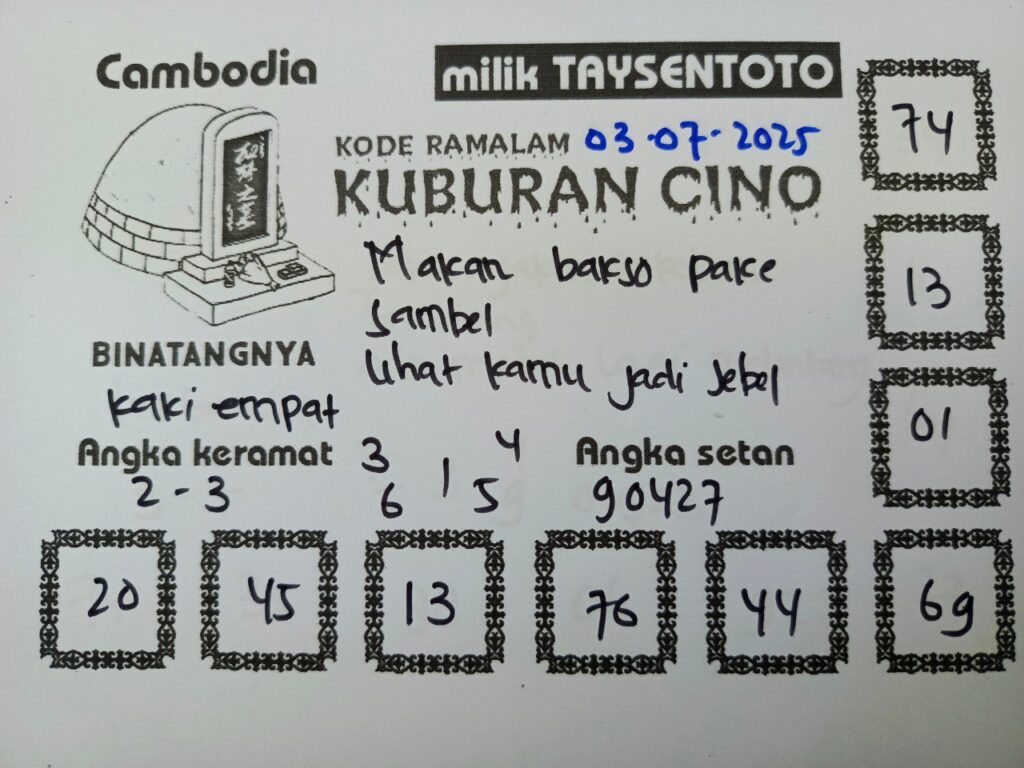 Cambodia
milik TAYSENTOTO
KODE RAMALAM 03-07-2025
KUBURAN CINO
Makan bakso pake
sambel
lihat kamu jadi sebel
BINATANGNYA
kaki empat
Angka keramat
2-3
3 4
6 1 5
Angka setan
90427
74
13
01
20 45 13 76 44 69